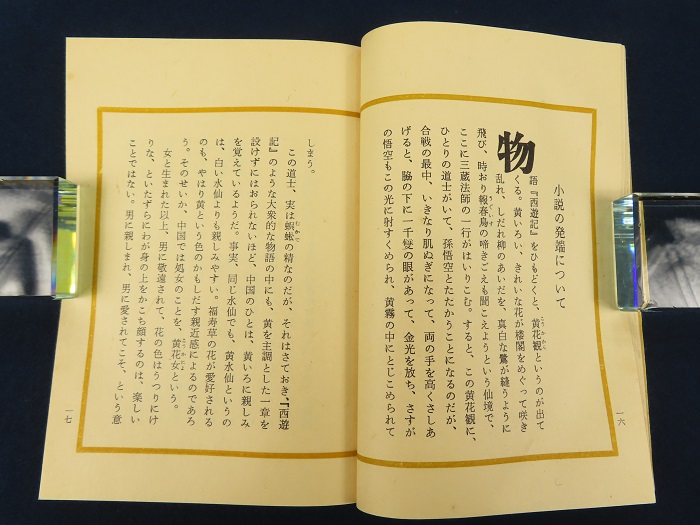 小説の発端について
物語『西遊記』をひもどくと、黄花観というのが出て
くる。黄いろい、きれいな花が楼閣をめぐって咲き
乱れ、しだれ柳のあいだを、真白な鷺が縫うように
飛び、時おり報春鳥の啼きごえも聞こえようという仙境で、
ここに三蔵法師の一行がはいりこむ。すると、この黄花観に、
ひとりの道士がいて、孫悟空とたたかうことになるのだが、
合戦の最中、いきなり肌ぬぎになって、両の手を高くさしあ
げると、脇の下に一千隻の眼があって、金光を放ち、さすが
の悟空もこの光に射すくめられ、黄霧の中にとじこめられて
一六
しまう。
この道士、実は蜈蚣の精なのだが、それはさておき、『西遊
記』のような大衆的な物語の中にも、黄を主調とした一章を
設けずにはおられないほど、中国のひとは、黄いろに親しみ
を覚えているようだ。事実、同じ水仙でも、黄水仙というの
は、白い水仙よりも親しみやすい。福寿草の花が愛好される
のも、やはり黄という色のかもしだす親近感によるのであろ
う。そのせいか、中国では処女のことを、黄花女という。
女と生まれた以上、男に敬遠されて、花の色はうつりにけ
りな、といたずらにわが身の上をかこち顔するのは、楽しい
ことではない。男に親しまれ、男に愛されてこそ、という意
一七